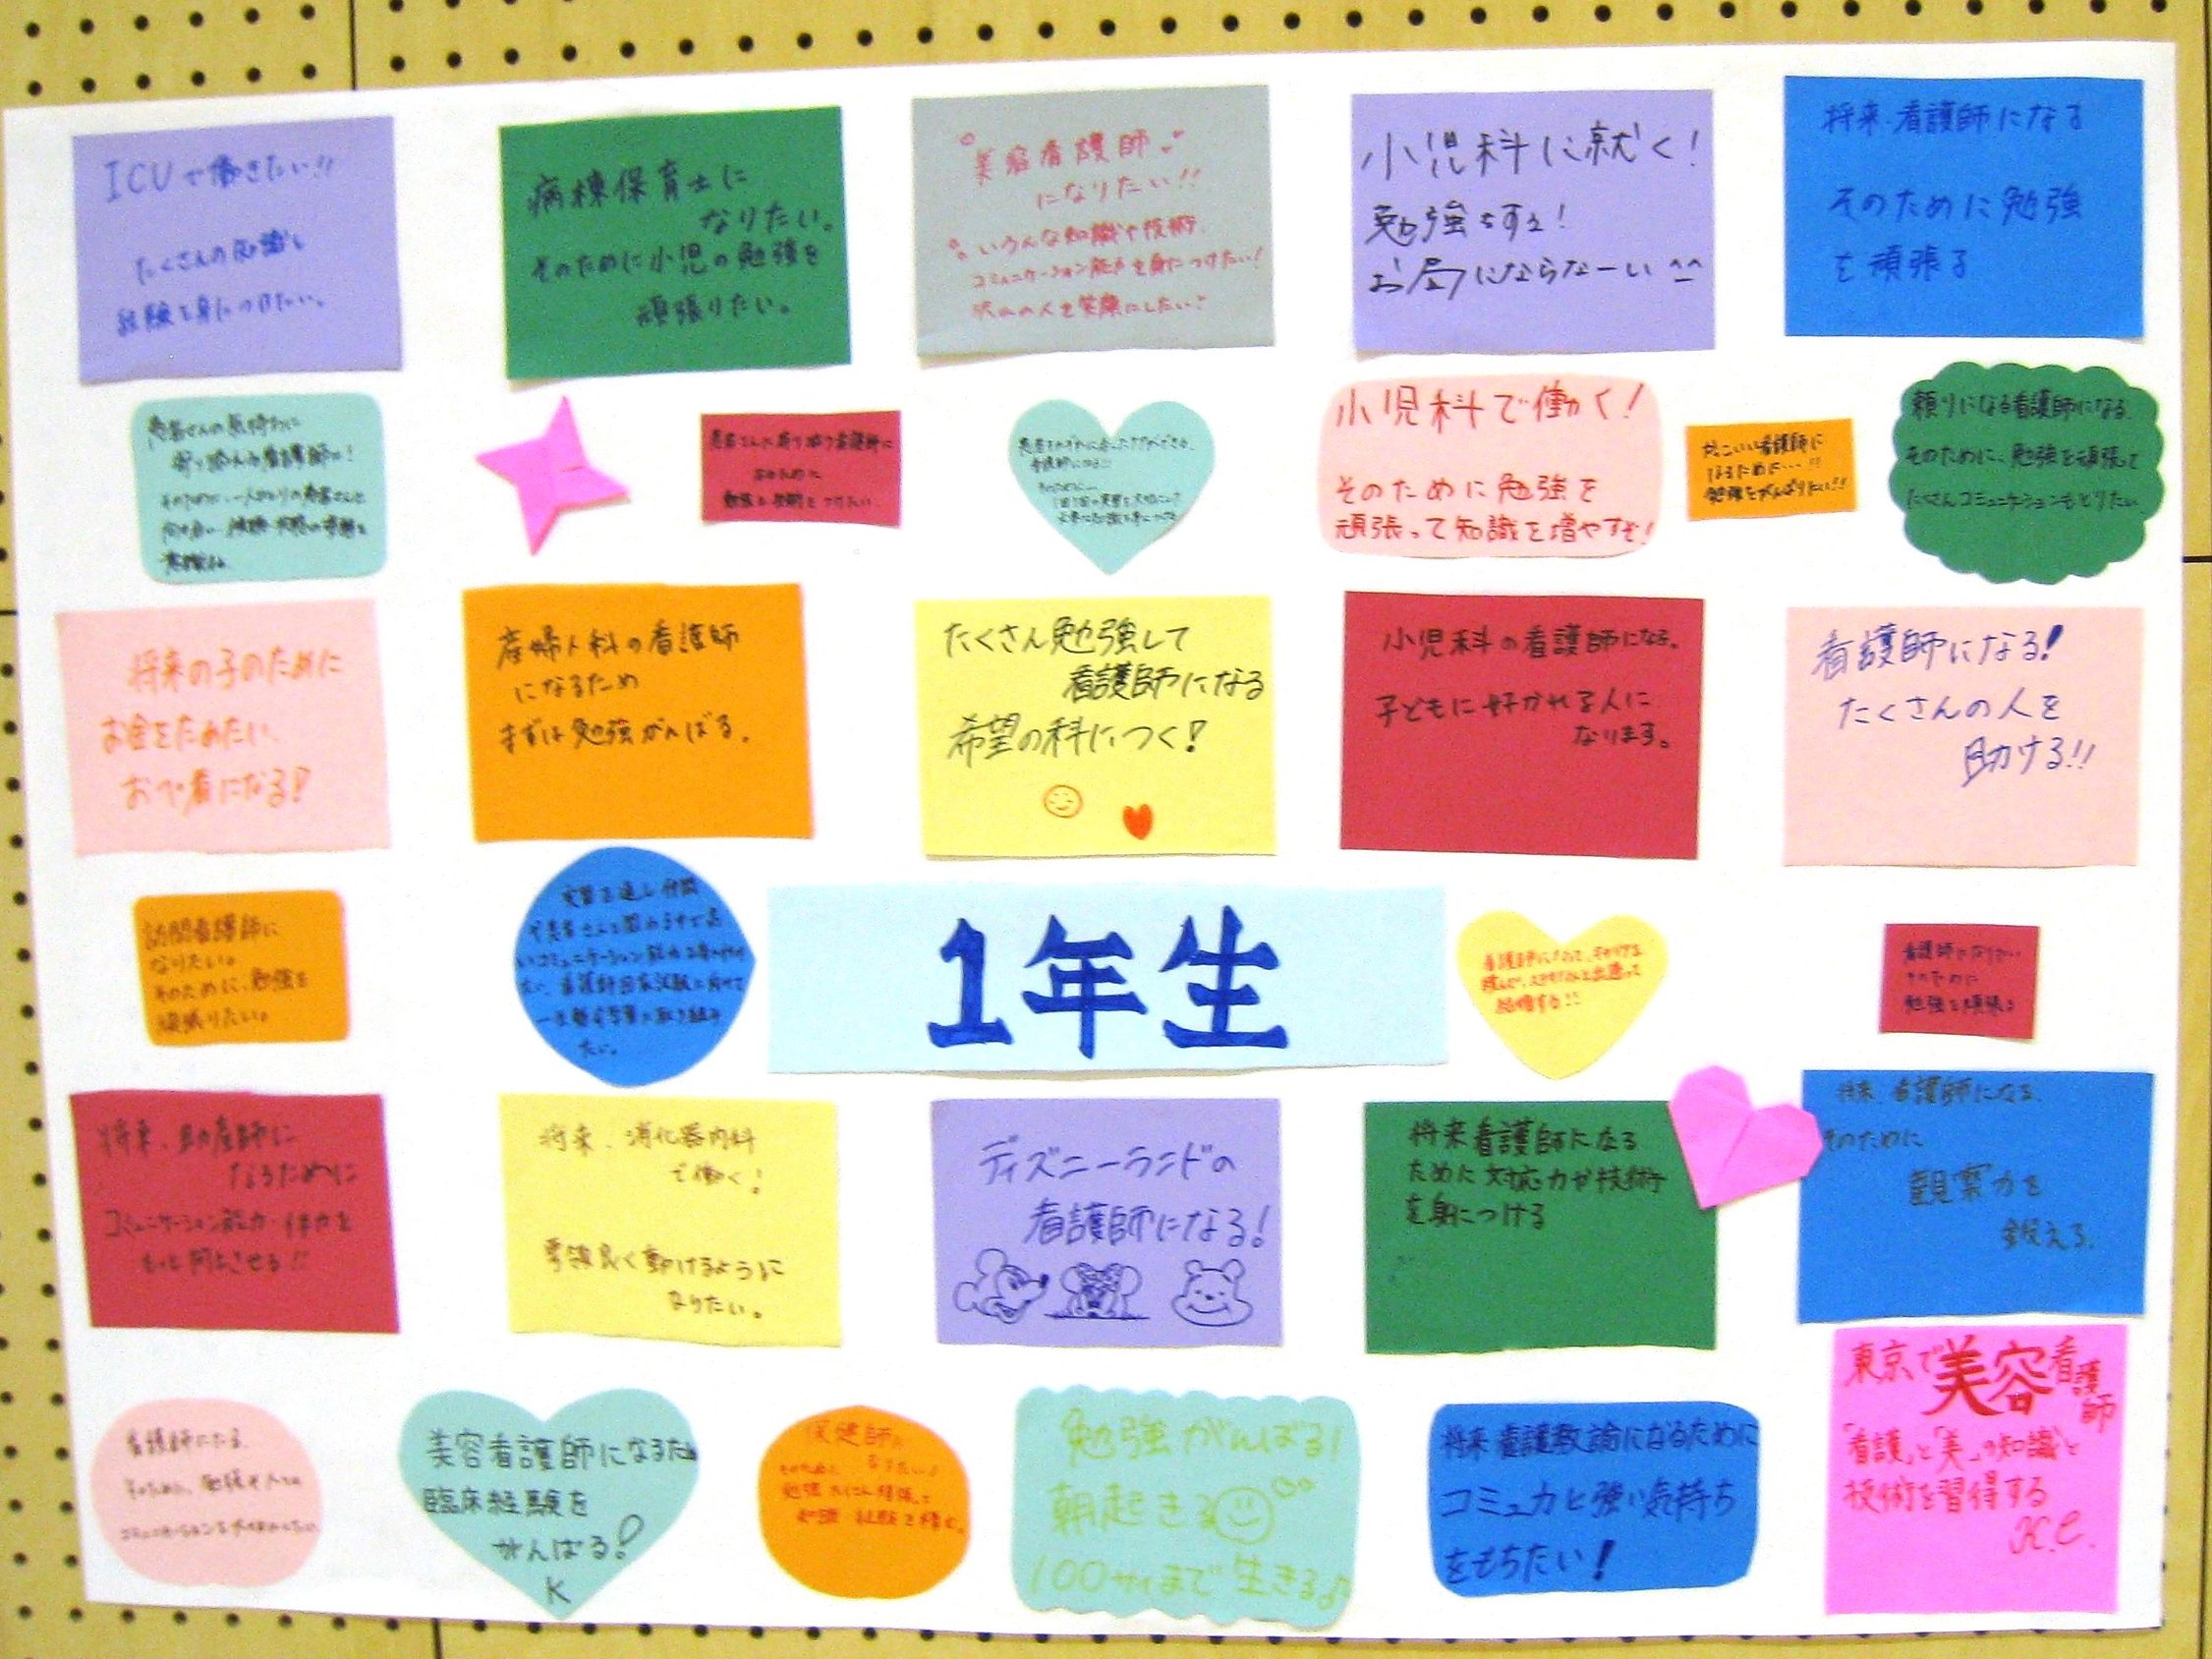 ICUで働きたい!!
たくさんの知識と
経験を身につけたい。
病棟保育士に
なりたい。
そのために小児の勉強を
頑張りたい。
美容看護師
になりたい!!
いろんな知識や技術、
コミュニケーション能力を身につけたい!
沢山の人を笑顔にしたい!
小児科に就く!
勉強もする!
お局にならなーい ^^
将来、看護師になる
そのために勉強
を頑張る
患者さんの気持ちに
寄り添える看護師に!
そのために、一人ひとりの患者さんと
向き合い、
患者さんに寄り添う看護師に
なるために
勉強と技術をつけたい
看護師になる
小児科で働く!
そのために勉強を
頑張って知識を増やすぞ!
かっこいい看護師に
なるために…!!
勉強をがんばりたい!!
頼りになる看護師になる。
そのために、勉強を頑張って
たくさんコミュニケーションをとりたい
将来の子のために
お金をためたい、
おぺ看になる!
産婦人科の看護師
になるため
まずは勉強がんばる。
たくさん勉強して
看護師になる
希望の科につく!
小児科の看護師になる。
子どもに好かれる人に
なります。
看護師になる!
たくさんの人を
助ける!!
訪問看護師に
なりたい。
そのために、勉強を
頑張りたい。
実習を通し仲間
や患者さんと関わる中で高
いコミュニケーション能力を身につけ
たい。看護師国家試験に向けて
一生懸命学業に取り組み
たい。
1年生
結婚する!!
看護師になりたい
そのために
勉強を頑張る
将来、助産師に
なるために
コミュニケーション能力・体力を
もっと向上させる!!
将来、消化器内科
で働く!
要領良く動けるように
なりたい。
ディズニーランドの
看護師になる!
将来看護師になる
ために対応力や技術
を身につける
将来、看護師になる。
そのために
観察力を
鍛える。
看護師になる。
そのために、勉強や人との
コミュニケーションを
美容看護師になるため
臨床経験を
がんばる!
K
保健師に
なりたい!
そのために
勉強
知識・経験を積む。
勉強がんばる!
朝起きる
100才まで生きる♪
将来養護教諭になるために
コミュ力と強い気持ち
をもちたい!
東京で美容看護師
「看護」と「美」の知識と
技術を習得する
K.C.